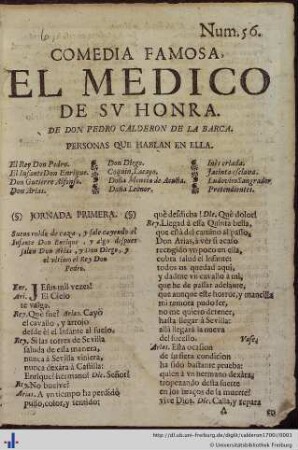 Num. 56.
COMEDIA FAMOSA.
EL MEDICO
DE SV HONRA.
DE DON PEDRO CALDERON DE LA BARCA.
PERSONAS QUE HABLAN EN ELLA.
El Rey Don Pedro.
El Infante Don Enrique.
Don Gutierre Alfonso.
Don Arias.
Don Diego.
Coquin, Lacayo.
Doña Mencia de Acuña.
Doña Leonor.
Inès criada.
Jacinta esclava.
Ludovico Sangrador.
Pretendientes.
(§) JORNADA PRIMERA. (§)
Suena ruido de caxa, y sale cayendo el
Infante Don Enrique, y algo despues
salen Don Arias, y Don Diego, y
el ultimo el Rey Don
Pedro.
Enr. JEsus mil vezes!
Ari. El Cielo
te valga.
Rey. Què fue? Arias. Cayò
el cavallo, y arrojò
desde èl el Infante al suelo.
Rey. Si las torres de Sevilla
saluda de esta manera,
nunca à Sevilla viniera,
nunca dexàra à Castilla:
Enrique? hermano! Die. Señor!
Rey. No buelve?
Arias. A un tiempo ha perdido
pulso, color, y sentido;
què desdicha! Die. Què dolor!
Rey. Llegad à essa Quinta bella,
que està del camino al passo,
Don Arias, à ver si acaso
recogido un poco en ella,
cobra salud el Infante:
todos os quedad aqui,
y dadme un cavallo à mi,
que he de passar adelante,
que aunque este horror, y mancilla
mi remora pudo ser,
no me quiero detener,
hasta llegar à Sevilla:
allà llegarà la nueva
del sucesso. Vase.
Arias. Esta ocasion
de su fiera condicion
ha sido bastante prueba:
quien à un hermano dexàra,
tropezando desta suerte
en los brazos de la muerte?
vive Dios. Die. Calla, y repara
A
http://dl.ub.uni-freiburg.de/diglit/calderon1700c/0001
© Universitätsbibliothek Freiburg